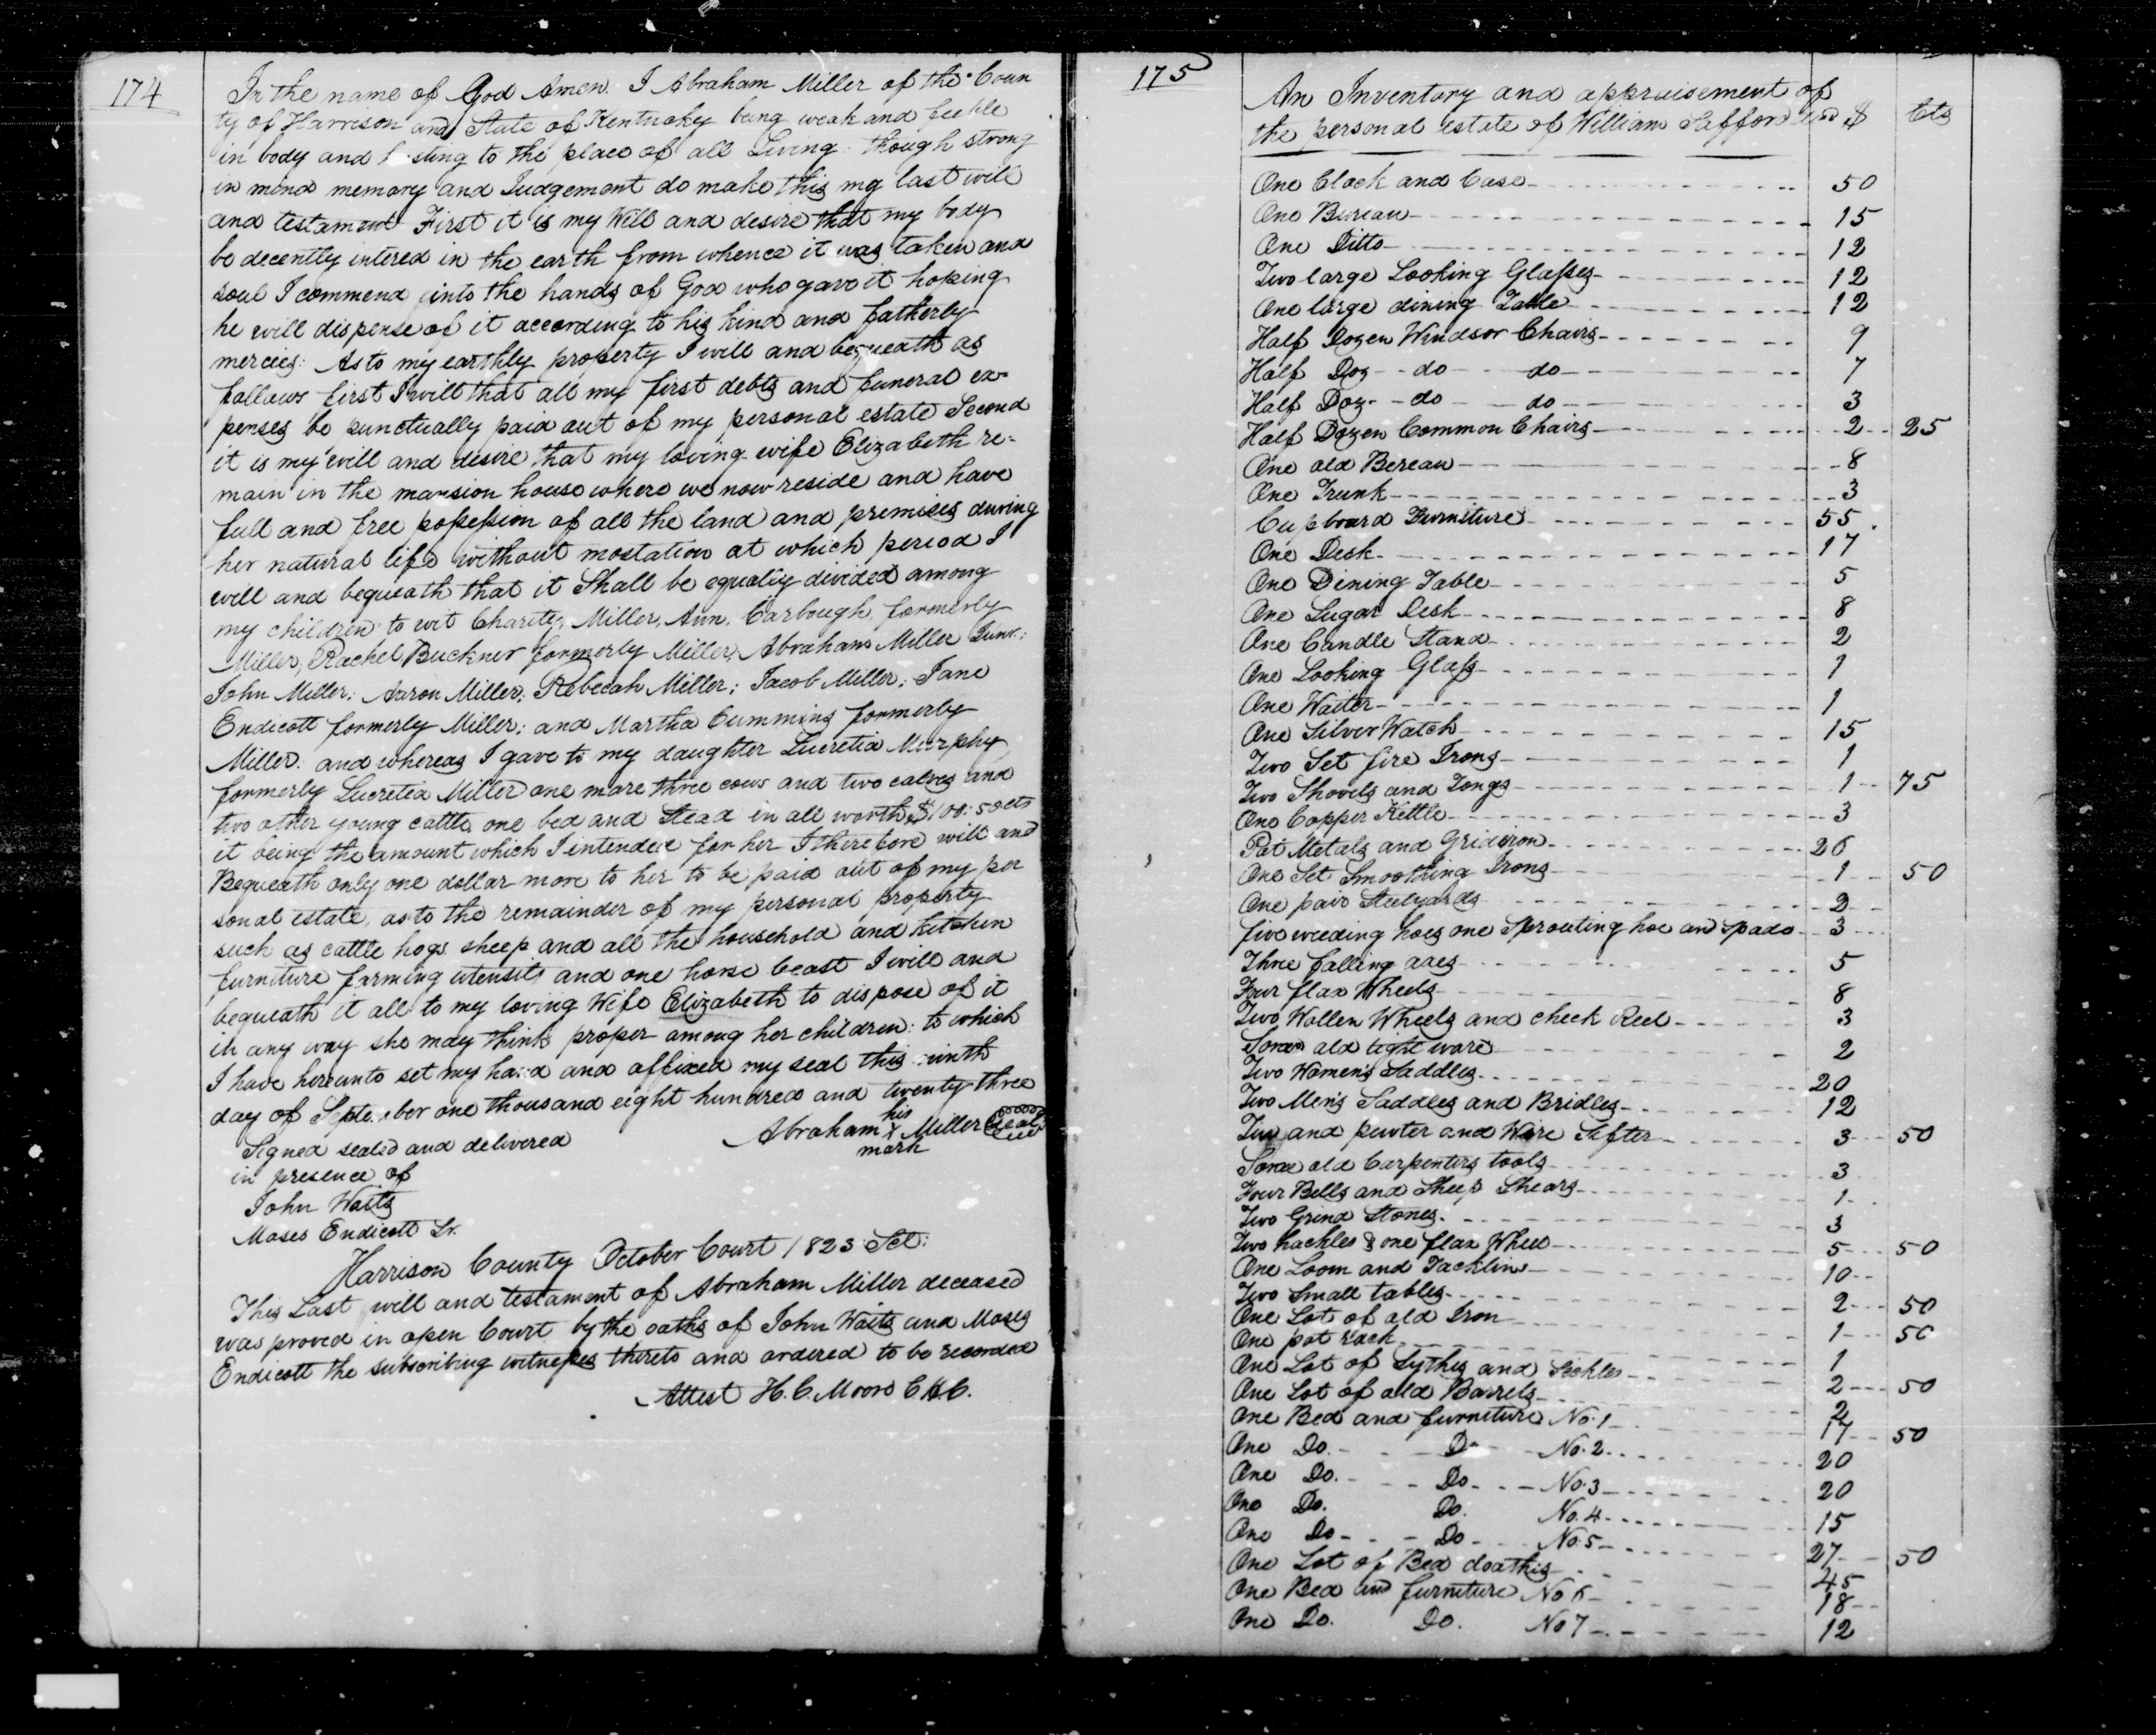 174
In the name of God Amen. I Abraham Miller of the Coun
ty of Harrison and State of Kentucky being weak and feeble
in body and h sting to the place of all Living though strong
in mind memory and Judgement do make this my last will
and testament First it is my Will and desire that my body
be decently intered in the earth from whence it was taken and
soul I commend into the hands of God who gave it hoping
he will dispense of it according to his kind and fatherly
mercies: As to my earthly property I will and bequeath as
follows first I will that all my first debts and funeral ex-
penses be punctually paid out of my personal estate Second
it is my will and desire that my loving wife Elizabeth re-
main in the mansion house where we now reside and have
full and free possession of all the land and premises during
her natural life without mostation at which period I
will and bequeath that it Shall be equally divided among
my children to wit Charity, Miller, Ann, Carbough, formerly
Miller, Rachel Buckner formerly Miller, Abraham Miller Junr:
John Miller; Aaron Miller; Rebecah Miller; Jacob Miller; Jane
Endicott formerly Miller; and Martha Cummins formerly
Miller: and whereas I gave to my daughter Lucretia Murphy
formerly Lucretia Miller one mare three cows and two calves and
two other young cattle one bed and Stead in all worth $100:50cts
it being the amount which I intended for her I therefore will and
Bequeath only one dollar more to her to be paid out of my per
sonal estate, as to the remainder of my personal property
such as cattle hogs sheep and all the household and kitchen
furniture farming utensils and one horse beast I will and
bequeath it all to my loving Wife Elizabeth to dispose of it
in any way she may think proper among her children: to which
I have hereunto set my hand and affixed my seal this ninth
day of September one thousand eight hundred and twenty three
Signed sealed and delivered
in presence of
John Waits
Moses Endicott Sr.
Abraham his X mark Miller Seal
Harrison County October Court 1823 Sct:
This Last will and testament of Abraham Miller deceased
was proved in open Court by the oaths of John Waits and Moses
Endicott the subscribing witnesses thereto and ordered to be recorded
Attest H. C. Moore C.H.C.
175
An Inventory and appraisement of
the personal estate of William Safford $ Cts
One Clock and Case 50
One Bureau 15
One Ditto 12
Two large Looking Glasses 12
One large dining Table 12
Half Dozen Windsor Chairs 9
Half Doz do do 7
Half Doz do do 3
Half Dozen Common Chairs 2 25
One old Bereau 8
One Trunk 3
Cupboard Furniture 55
One Desk 17
One Dining Table 5
One Sugar Desk 8
One Candle Stand 2
One Looking Glass 1
One Waiter 1
One Silver Watch 15
Two Set fire Irons 1
Two Shovels and Tongs 1 75
One Copper Kettle 3
Pot Metals and Gridiron 26
One Set Smoothing Irons 1 50
One pair Steelyards 2
five weeding hoes one Sprouting hoe and spade 3
Three falling axes 5
Four flax Wheels 8
Two Wollen Wheels and check Reel 3
Some old tight ware 2
Two Women's Saddles 20
Two Men's Saddles and Bridles 12
Tin and pewter and Wire Sifter 3 50
Some old Carpenters tools 3
Four Bells and Sheep Shears 1
Two Grind Stones 3
Two hackles & one flax Wheel 5 50
One Loom and Tackline 10
Two Small tables 2 50
One Lot of old Iron 1 50
One pot rack 1
One Lot of Sythes and Sickles 2 50
One Lot of old Barrels 2
One Bed and furniture No. 1 17 50
One Do. Do No. 2 20
One Do. Do No. 3 20
One Do. Do. No. 4 15
One Do Do No. 5 27 50
One Lot of Bed cloathis 45
One Bed and furniture No 6 18
One Do. Do. No 7 12